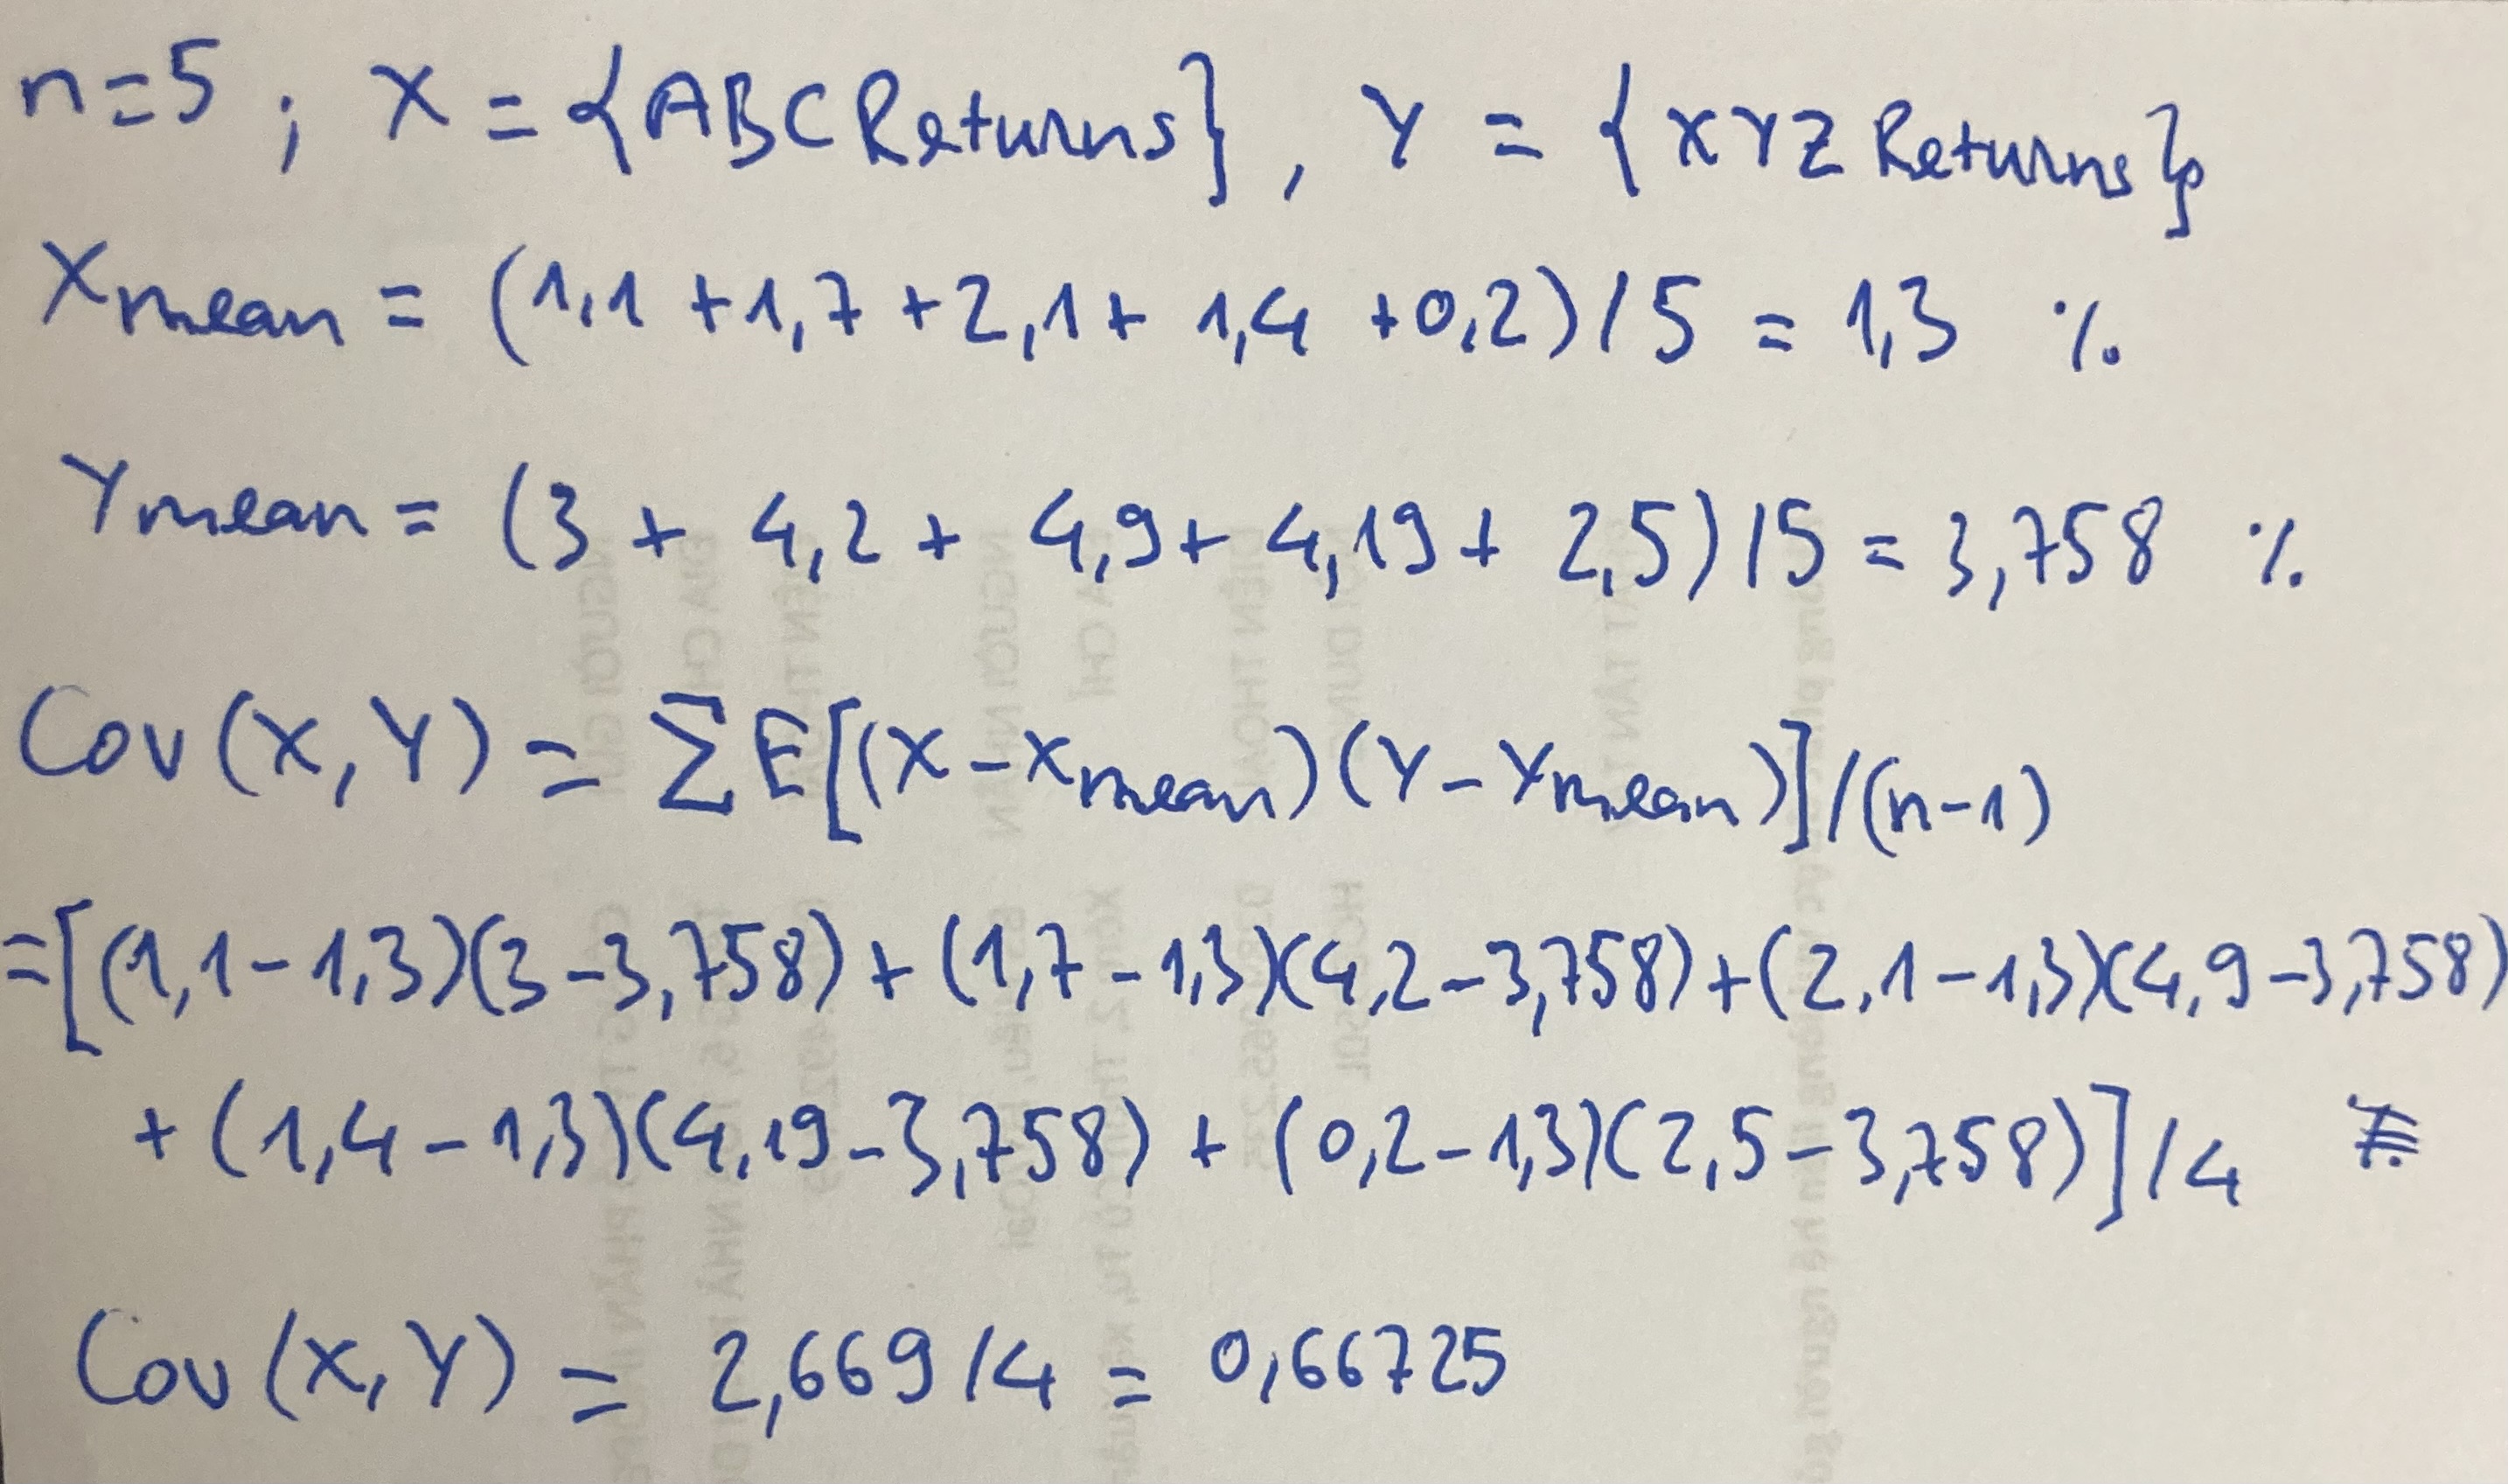 n=5 ; X = {ABC Returns} , Y = {XYZ Returns}
Xmean = (1,1 +1,7 +2,1+ 1,4 +0,2)/5 = 1,3 %
Ymean = (3 + 4,2 + 4,9+ 4,19 + 2,5)/5 = 3,758 %
Cov(X,Y) = ΣE[(X-Xmean)(Y-Ymean)]/(n-1)
=[(1,1-1,3)(3-3,758)+(1,7-1,3)(4,2-3,758)+(2,1-1,3)(4,9-3,758)
+(1,4-1,3)(4,19-3,758) + (0,2-1,3)(2,5-3,758)]/4
Cov(X,Y) = 2,669/4 = 0,66725